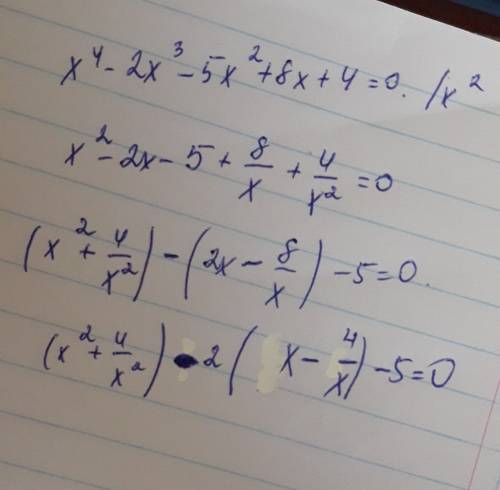 x⁴ - 2x³ - 5x² + 8x + 4 = 0. /x²
x² - 2x - 5 + 8/x + 4/x² = 0
(x² + 4/x²) - (2x - 8/x) - 5 = 0.
(x² + 4/x²) - 2(x - 4/x) - 5 = 0